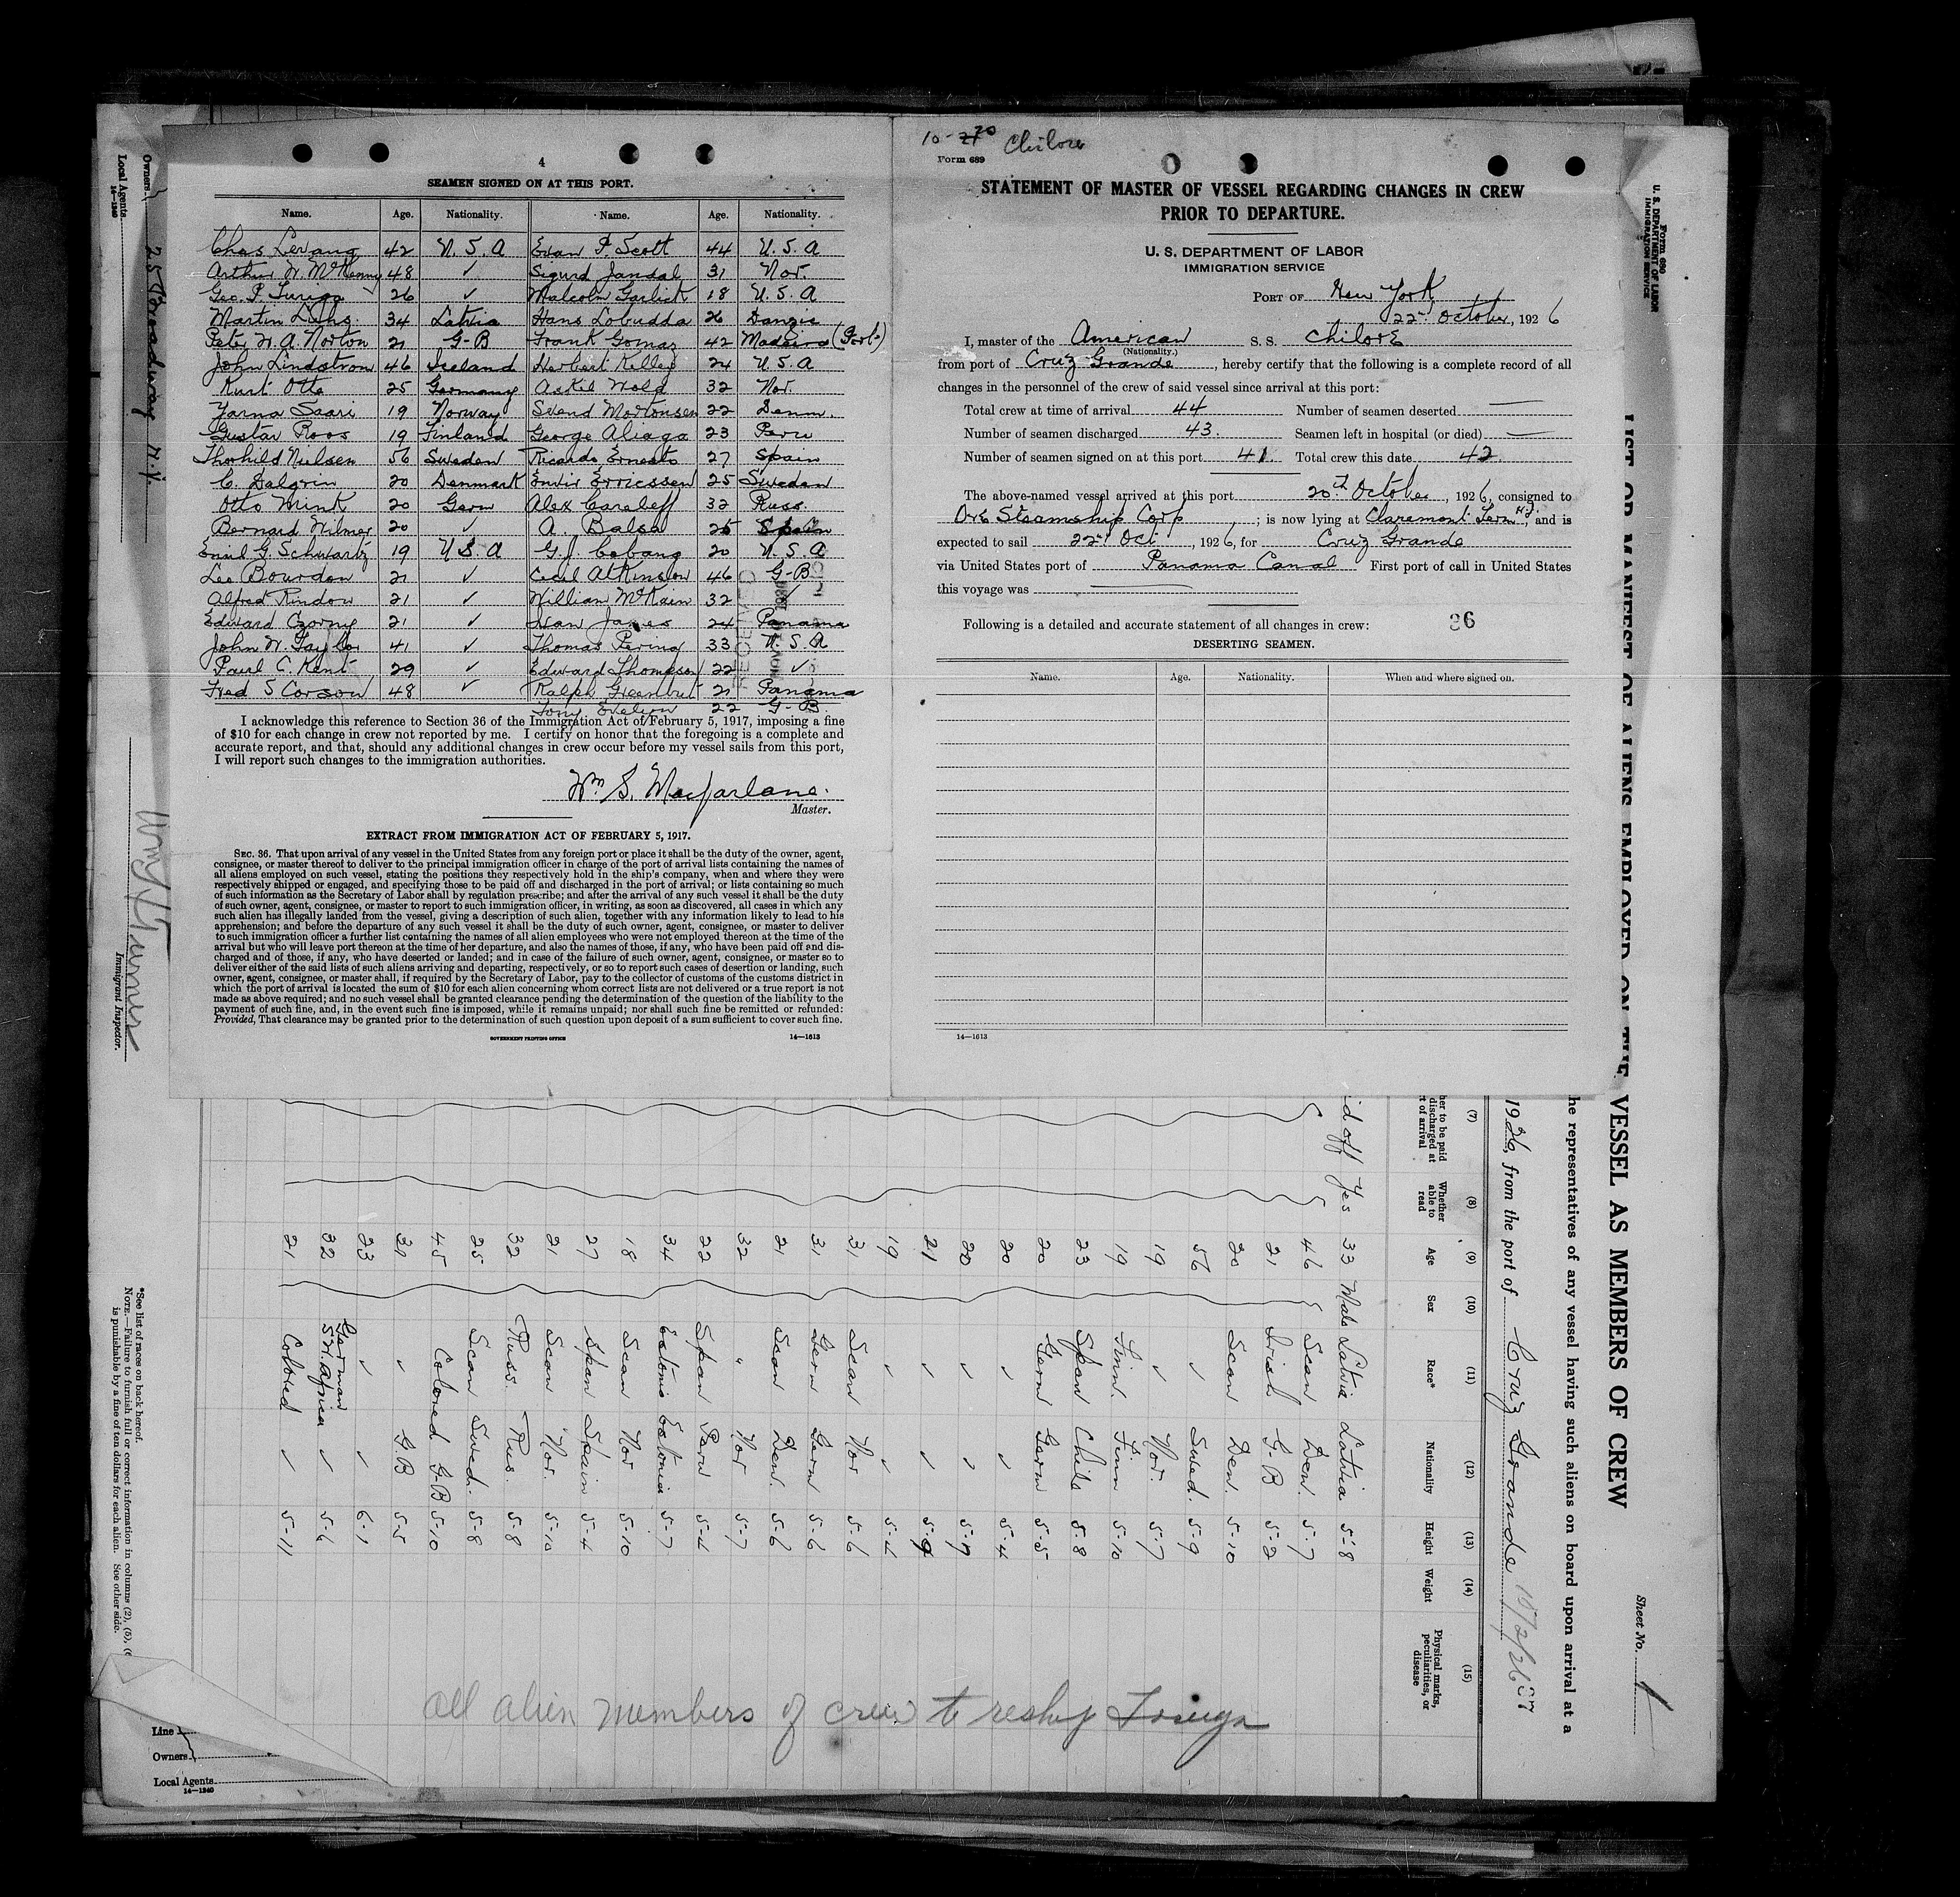 4
SEAMEN SIGNED ON AT THIS PORT.
Name. Age. Nationality. Name. Age. Nationality.
Chas Levang 42 U. S. A Evan P. Scott 44 U. S. A
Arthur W. McKenny 48 ✓ Sigurd Jandal 31 Nor.
Geo. P. 26 ✓ Malcolm Garlick 18 U. S. A
Martin 34 Latvia Hans Lobudda 26 Danzic
Peter W. A. Norton 21 G-B Frank Gomaz 42 Madeira
John Lindstrom 46 Iceland Herbert Kelley 24 U. S. A
Kurt Otte 25 Germany Askil Wold 32 Nor.
Yarna Saari 19 Norway Svend Mortonsen 22 Denm.
Gustav Roos 19 Finland George Aliaga 23 Peru
Thorhild Nielsen 56 Sweden Ricardo Ernesto 27 Spain
C. Dalgrin 20 Denmark Erricssen 25 Sweden
Otto Mink 20 Germ Alex 32 Russ.
Bernard Wilmer 20 ✓ A. Balsa 25 Spain
Emil G. Schwartz 19 U S A G. J. Cabang 20 U. S. A
Leo Bourdon 21 ✓ Cecil Atkinson 46 G-B
Alfred Rindow 21 ✓ William McKain 32 ✓
Edward Czorny 21 ✓ Ivan James 24 Panama
John W. Taylor 41 ✓ Thomas Pering 33 U. S. A
Paul C. Kent 29 ✓ Edward Thompson 22 ✓
Fred S Corson 48 ✓ Ralph Greenbut 21 Panama
Tony Evelyn 22 G-B.
I acknowledge this reference to Section 36 of the Immigration Act of February 5, 1917, imposing a fine
of $10 for each change in crew not reported by me. I certify on honor that the foregoing is a complete and
accurate report, and that, should any additional changes in crew occur before my vessel sails from this port,
I will report such changes to the immigration authorities.
Wm. S. Macfarlane.
Master.
EXTRACT FROM IMMIGRATION ACT OF FEBRUARY 5, 1917.
SEC. 36. That upon arrival of any vessel in the United States from any foreign port or place it shall be the duty of the owner, agent,
consignee, or master thereof to deliver to the principal immigration officer in charge of the port of arrival lists containing the names of
all aliens employed on such vessel, stating the positions they respectively hold in the ship's company, when and where they were
respectively shipped or engaged, and specifying those to be paid off and discharged in the port of arrival; or lists containing so much
of such information as the Secretary of Labor shall by regulation prescribe; and after the arrival of any such vessel it shall be the duty
of such owner, agent, consignee, or master to report to such immigration officer, in writing, as soon as discovered, all cases in which any
such alien has illegally landed from the vessel, giving a description of such alien, together with any information likely to lead to his
apprehension; and before the departure of any such vessel it shall be the duty of such owner, agent, consignee, or master to deliver
to such immigration officer a further list containing the names of all alien employees who were not employed thereon at the time of the
arrival but who will leave port thereon at the time of her departure, and also the names of those, if any, who have been paid off and dis-
charged and of those, if any, who have deserted or landed; and in case of the failure of such owner, agent, consignee, or master so to
deliver either of the said lists of such aliens arriving and departing, respectively, or so to report such cases of desertion or landing, such
owner, agent, consignee, or master shall, if required by the Secretary of Labor, pay to the collector of customs of the customs district in
which the port of arrival is located the sum of $10 for each alien concerning whom correct lists are not delivered or a true report is not
made as above required; and no such vessel shall be granted clearance pending the determination of the question of the liability to the
payment of such fine, and, in the event such fine is imposed, while it remains unpaid; nor shall such fine be remitted or refunded:
Provided, That clearance may be granted prior to the determination of such question upon deposit of a sum sufficient to cover such fine.
GOVERNMENT PRINTING OFFICE 14—1613
Chilore
Form 689
STATEMENT OF MASTER OF VESSEL REGARDING CHANGES IN CREW
PRIOR TO DEPARTURE.
U. S. DEPARTMENT OF LABOR
IMMIGRATION SERVICE
PORT OF New York
22nd October, 1926
I, master of the American S. S. Chilore
(Nationality.)
from port of Cruz Grande, hereby certify that the following is a complete record of all
changes in the personnel of the crew of said vessel since arrival at this port:
Total crew at time of arrival 44 Number of seamen deserted —
Number of seamen discharged 43. Seamen left in hospital (or died) —
Number of seamen signed on at this port 41. Total crew this date 42.
The above-named vessel arrived at this port 20th October, 1926, consigned to
Ore Steamship Corp; is now lying at Claremont Term NJ, and is
expected to sail 22nd Oct, 1926, for Cruz Grande
via United States port of Panama Canal First port of call in United States
this voyage was —
Following is a detailed and accurate statement of all changes in crew: 86
DESERTING SEAMEN.
Name. Age. Nationality. When and where signed on.
14—1613
Form 689
U. S. DEPARTMENT OF LABOR
IMMIGRATION SERVICE
Sheet No. 1
LIST OR MANIFEST OF ALIENS EMPLOYED ON THE VESSEL AS MEMBERS OF CREW
he representatives of any vessel having such aliens on board upon arrival at a
1926, from the port of Cruz Grande
(7) (8) (9) (10) (11) (12) (13) (14) (15)
her to be paid discharged at t of arrival Whether able to read Age Sex Race* Nationality Height Weight Physical marks, peculiarities, or disease
id off Yes 33 Male Latvia Latvia 5-8
46 Scan Den. 5-7
21 Irish G-B 5-2
20 Scan Den. 5-10
56 ✓ Swed. 5-9
19 ✓ Nor. 5-7
19 Finn. Finn 5-10
23 Span Chile 5-8
20 Germ Germ 5-5
20 ✓ ✓ 5-4
20 ✓ ✓ 5-7
21 ✓ ✓ 5-9
19 ✓ ✓ 5-4
31 Scan Nor 5-6
31 Germ Germ 5-6
21 Scan Den. 5-6
32 " Nor 5-7
22 Span Peru 5-4
34 Estonia Estonia 5-7
18 Scan Nor 5-10
27 Span Spain 5-4
21 Scan Nor. 5-10
32 Russ. Rus. 5-8
25 Scan Swed. 5-8
45 Colored G-B 5-10
31 ✓ G B 5-5
23 ✓ ✓ 6-1
32 German ✓ 5-6
21 Colored ✓ 5-11
all alien members of crew to reship Foreign
Owners
25 Broadway N.Y.
Local Agents
14—1240
Immigrant Inspector.
*See list of races on back hereof.
NOTE.—Failure to furnish full or correct information in columns (2), (5), (
is punishable by a fine of ten dollars for each alien. See other side.
Line
Owners
Local Agents
14—1240